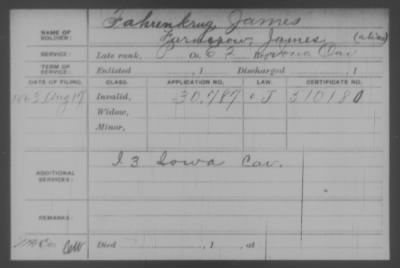 NAME OF SOLDIER: Fahrenkrug, James
James (alias)
SERVICE: Late rank, Co. Iowa Cav
TERM OF SERVICE: Enlisted , 1 Discharged , 1
DATE OF FILING. CLASS. APPLICATION NO. LAW. CERTIFICATE NO.
Aug 17 Invalid, 30,787 J 310180
Widow,
Minor,
ADDITIONAL SERVICES: I 3 Iowa Cav.
REMARKS:
Died , 1 , at